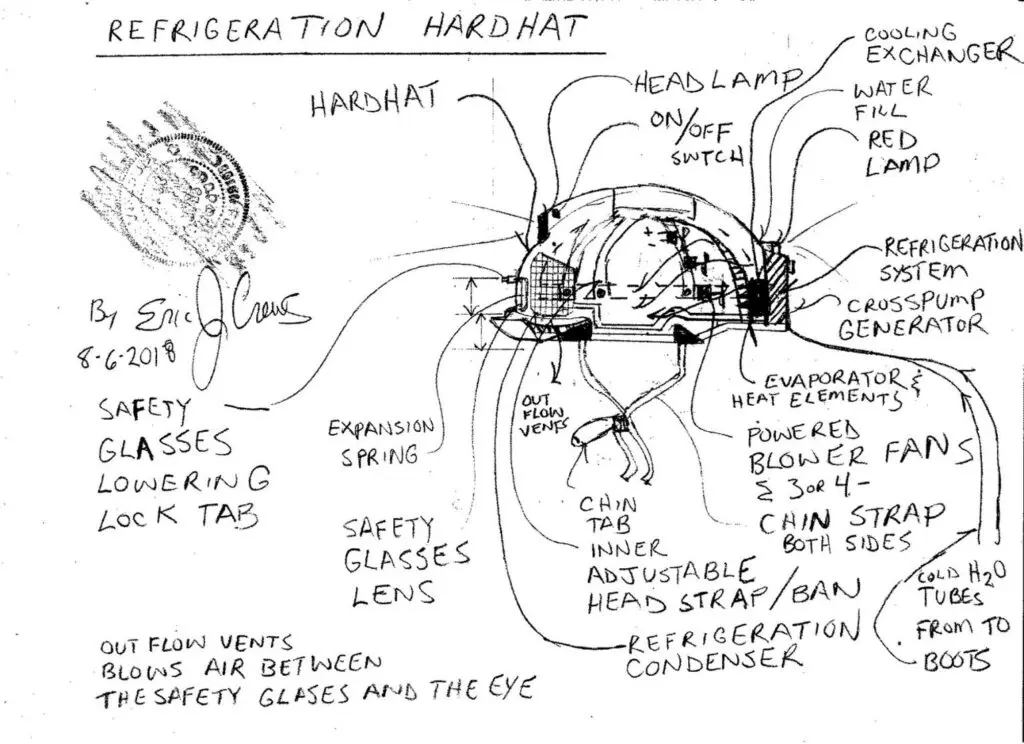 REFRIGERATION HARDHAT
HARDHAT
HEAD LAMP
ON/OFF
SWTCH
COOLING
EXCHANGER
WATER
FILL
RED
LAMP
REFRIGERATION
SYSTEM
CROSSPUMP
GENERATOR
By Eric J Crews
8-6-2018
SAFETY
GLASSES
LOWERING
LOCK TAB
EXPANSION
SPRING
OUT
FLOW
VENTS
EVAPORATOR &
HEAT ELEMENTS
POWERED
BLOWER FANS
& 3 OR 4-
CHIN STRAP
BOTH SIDES
CHIN
TAB
SAFETY
GLASSES
LENS
INNER
ADJUSTABLE
HEAD STRAP/BAN
REFRIGERATION
CONDENSER
COLD H2O
TUBES
FROM TO
BOOTS
OUT FLOW VENTS
BLOWS AIR BETWEEN
THE SAFETY GLASES AND THE EYE